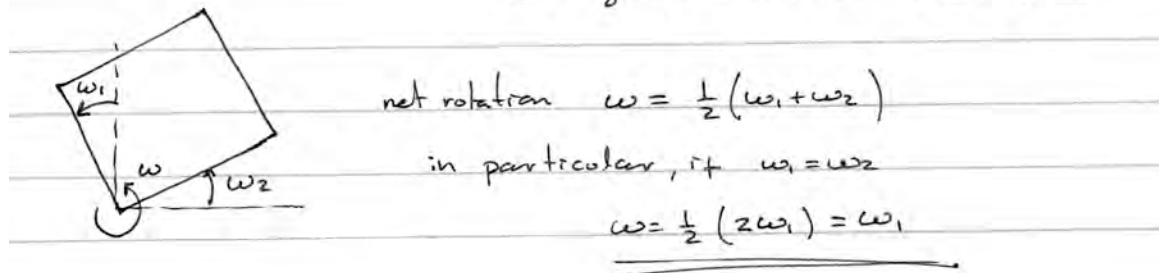 ω₁
net rotation ω = ½ (ω₁ + ω₂)
in particular, if ω₁ = ω₂
ω
ω₂
ω = ½ (2ω₁) = ω₁